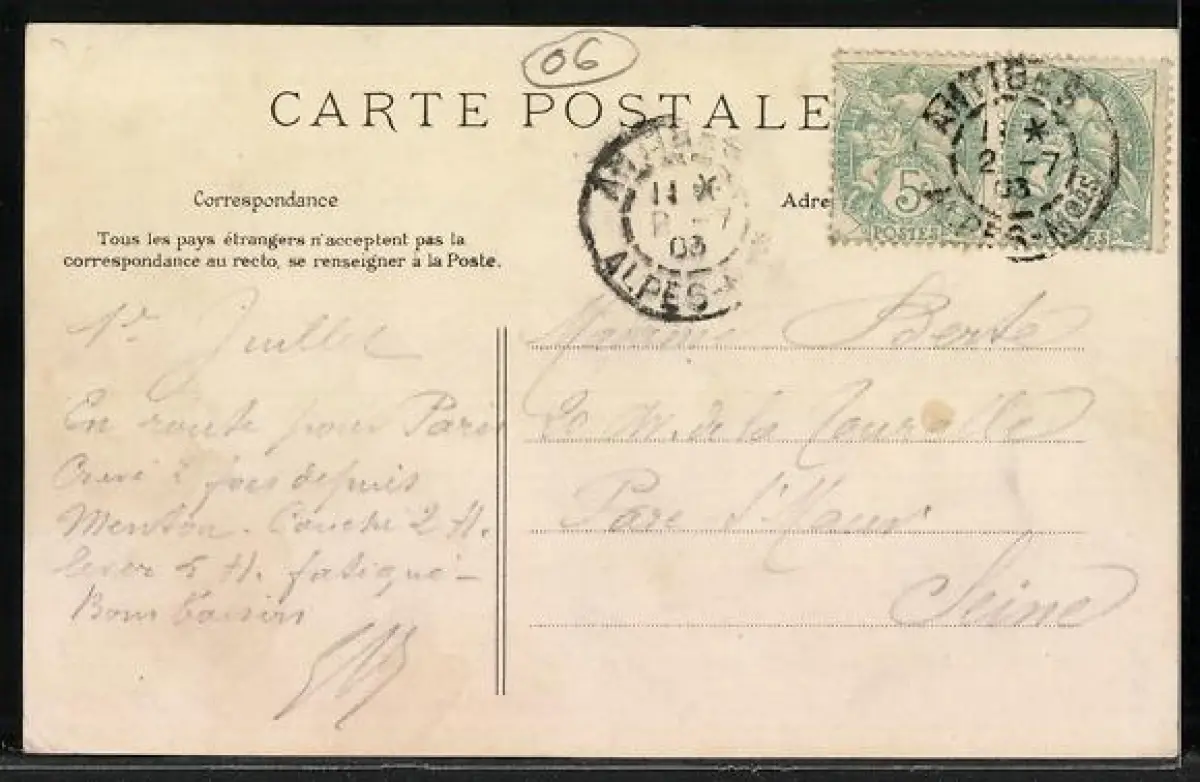 06
CARTE POSTALE
Correspondance
Adre
Tous les pays étrangers n'acceptent pas la
correspondance au recto, se renseigner à la Poste.
ANTIBES
11 *
2 -7
03
ALPES-
5
POSTES
ANTIBES
*
2 -7
03
ALPES-Mmes
1er Juillet
En route pour Paris
fois depuis
Menton. Couché 2 H.
Lever 5 H. fatigué -
Bons baisers
Berte
de la
Parc St Maur
Seine